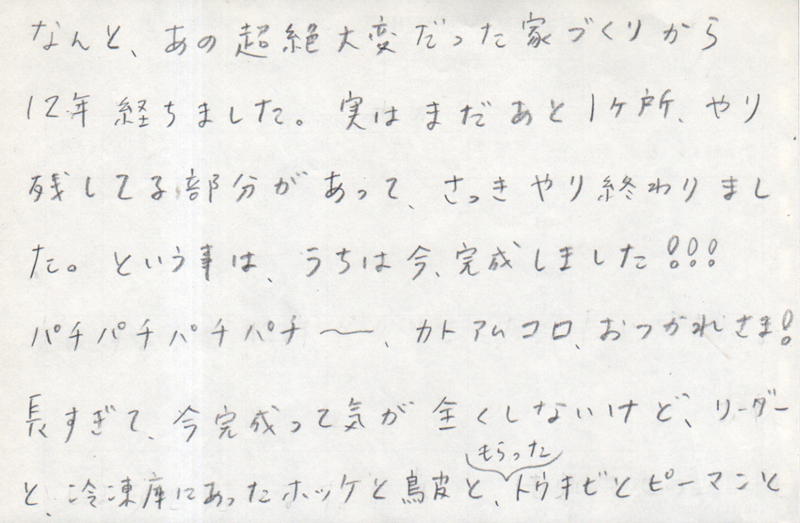 なんと、あの超絶大変だった家づくりから
12年経ちました。実はまだあと1ヶ所、やり
残してる部分があって、さっきやり終わりまし
た。という事は、うちは今、完成しました!!!
パチパチパチパチ〜、カトアムコロ、おつかれさま!
長すぎて、今完成って気が全くしないけど、リーダー
もらった
と、冷凍庫にあったホッケと鳥皮と、トウキビとピーマンと